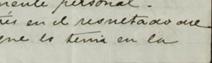 mente personal.
en el resultado que
que le tenia en la